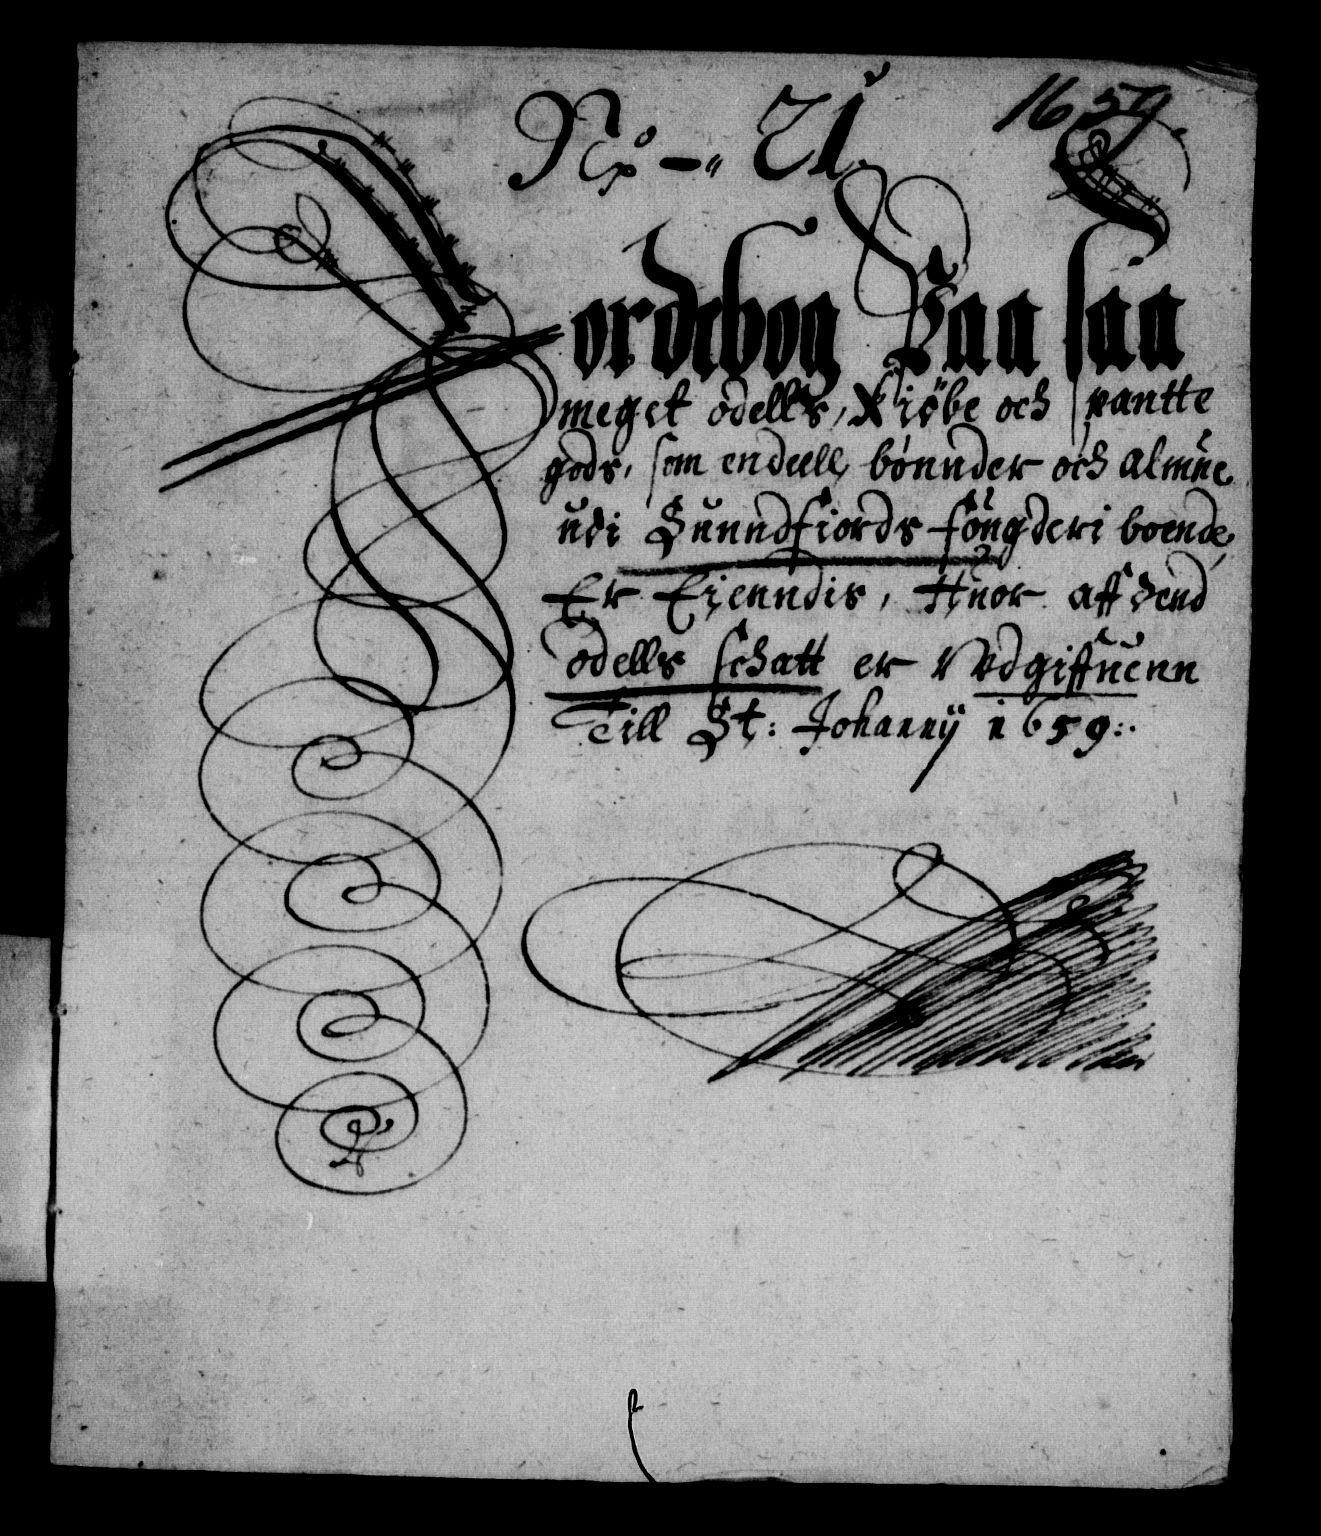 No – 21
1659
Jordebog Paa saa
meget odells, Kiöbe och pantte
gods, som endeell bønnder och almue
udi Sunndfiords fougderi boende
Er Eiendis, Huor aff dend
odells schatt er Udgiffuenn
Till St: Johannij 1659:.